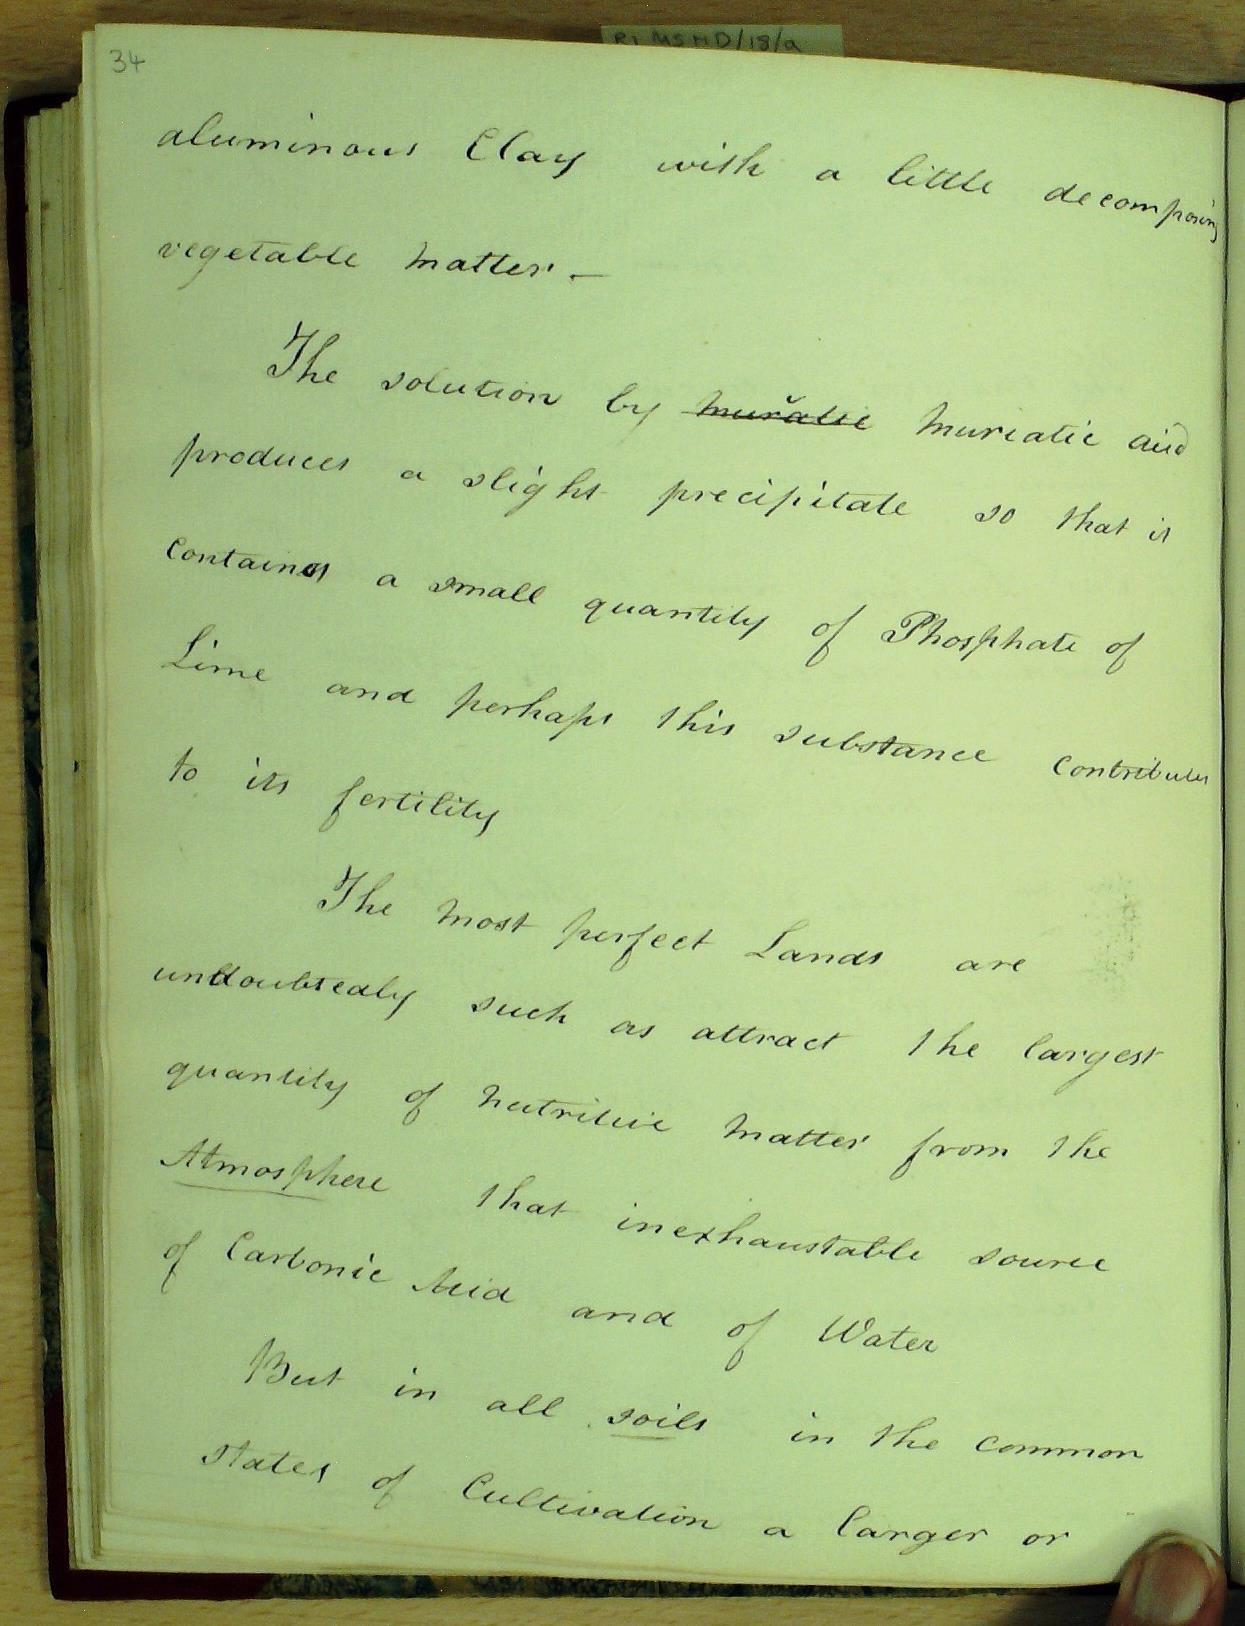 RI MS HD/18/a
34
aluminous Clay with a little decomposing
vegetable matter. —
The solution by muriatic muriatic acid
produces a slight precipitate so that it
contains a small quantity of Phosphate of
Lime and perhaps this substance contributes
to its fertility
The most perfect Lands are
undoubtedly such as attract the largest
quantity of nutritive matter from the
Atmosphere that inexhaustable source
of Carbonic Acid and of Water
But in all soils in the common
states of Cultivation a larger or